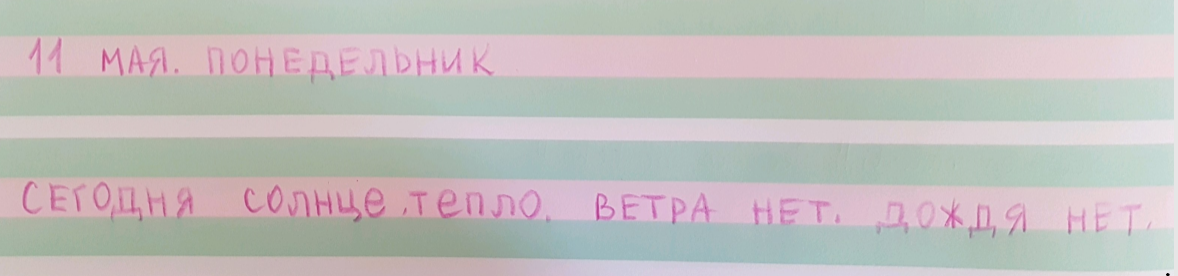 11 МАЯ. ПОНЕДЕЛЬНИК
СЕГОДНЯ СОЛНЦЕ, ТЕПЛО. ВЕТРА НЕТ. ДОЖДЯ НЕТ.